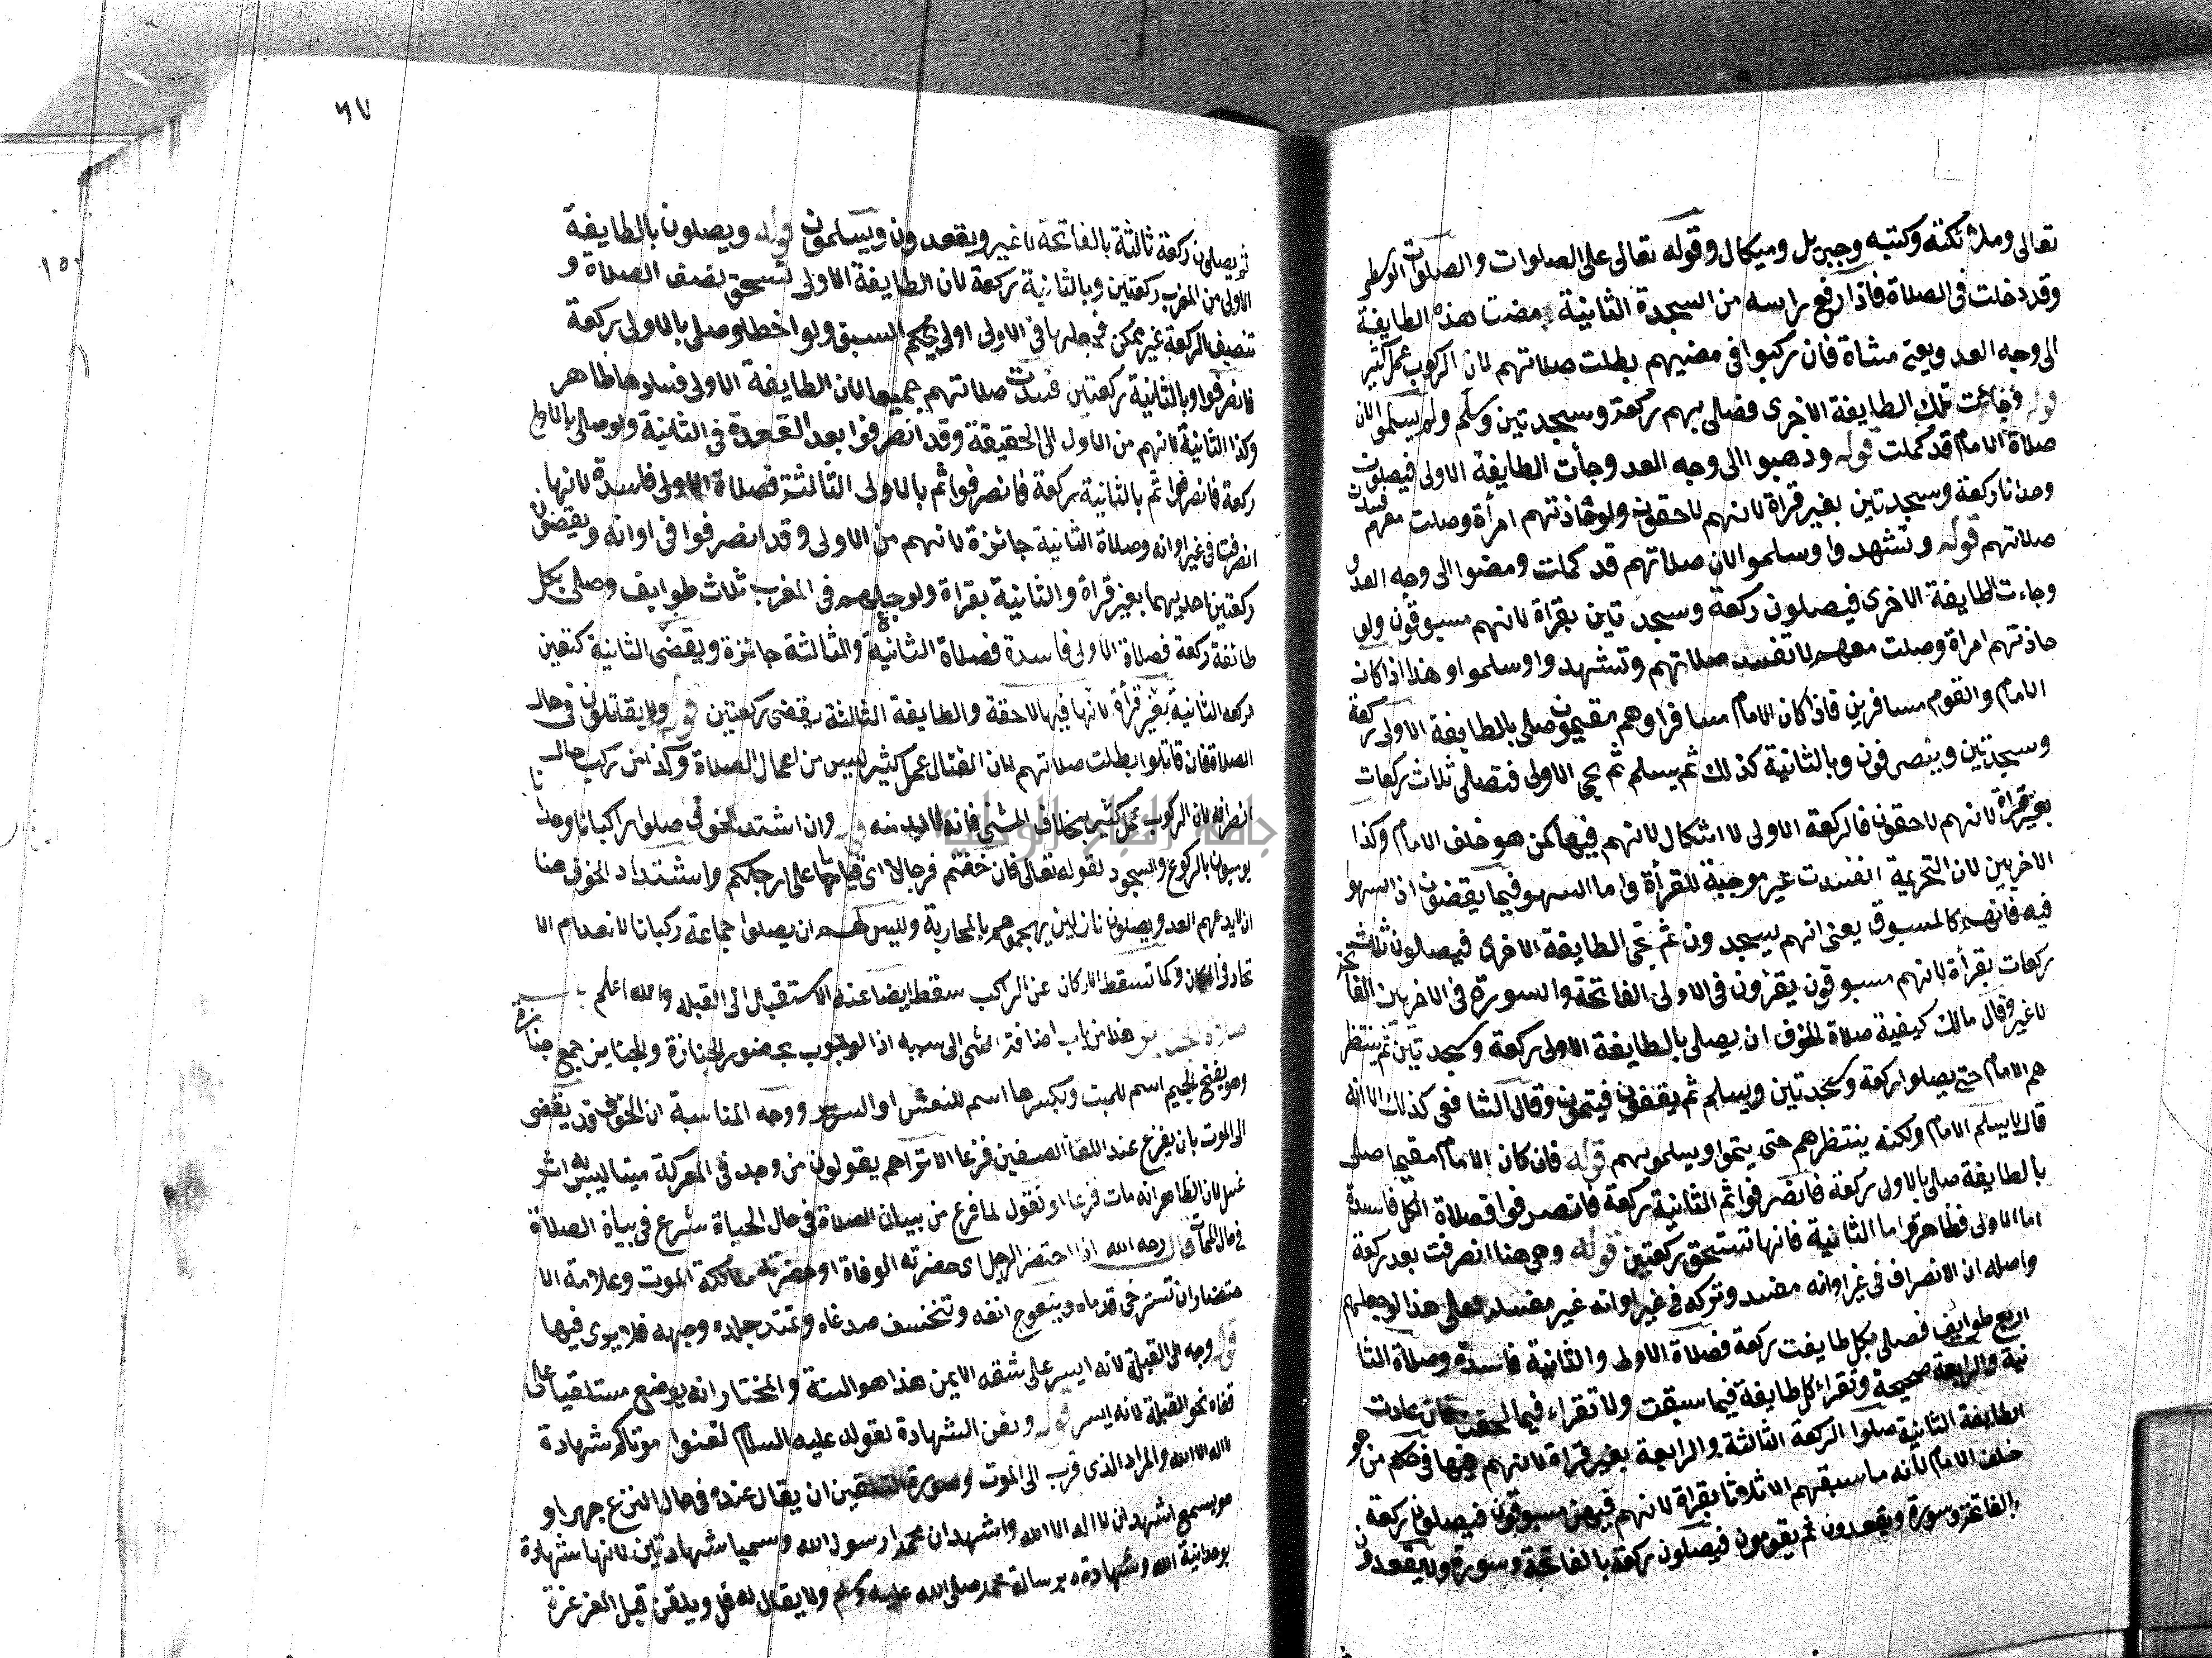 تعالى وملائكته وكتبه وجبريل وميكال وقوله تعالى على الصلوات والصلوة الوسطى
وقد دخلت في الصلاة فاذا رفع راسه من السجدة الثانية مضت هذه الطايفة
الى وجه العدو يعني مشاة فان ركبوا في مضيهم بطلت صلاتهم لان الركوب عمل كثير
قوله وجاءت تلك الطايفة الاخرى فصلى بهم ركعة وسجدتين وسلم ولم يسلموا لان
صلاة الامام قد كملت قوله وذهبوا الى وجه العدو وجأت الطايفة الاولى فيصلون
وحدانا ركعة وسجدتين بغير قراة لانهم لاحقون ولو حاذتهم امرأة وصلت معهم فسدت
صلاتهم قوله وتشهدوا وسلموا لان صلاتهم قد كملت ومضوا الى وجه العدو
وجاءت الطايفة الاخرى فيصلون ركعة وسجدتين بقراة لانهم مسبوقون ولو
حاذتهم امراة وصلت معهم لا تفسد صلاتهم وتشهدوا وسلموا وهذا اذا كان
الامام والقوم مسافرين فاذا كان الامام مسافرا وهم مقيمون صلى بالطايفة الاولى ركعة
وسجدتين وينصرفون وبالثانية كذلك ثم يسلم ثم تجي الاولى فتصلى ثلاث ركعات
بغير قراة لانهم لاحقون فالركعة الاولى لا اشكال لانهم فيها كمن هو خلف الامام وكذا
الاخريين لان التحريمة انفسدت غير موجبة للقرأة واما السهو فيما يقضون اذا سهوا
فيه فانهم كالمسبوق يعني انهم يسجدون ثم تجى الطايفة الاخرى فيصلون ثلاث
ركعات بقرأة لانهم مسبوقون يقرؤن في الاولى الفاتحة والسورة وفي الاخريين الفاتحة
لا غير وقال مالك كيفية صلاة الخوف ان يصلى بالطايفة الاولى ركعة وسجدتين ثم ينتظر
هم الامام حتى يصلوا ركعة وسجدتين ويسلم ثم يقفون فيتمون وقال الشافعي كذلك الا انه
قال لا يسلم الامام ولكنه ينتظرهم حتى يتموا ويسلمو بهم قوله فان كان الامام مقيما صلى
بالطايفة صلى بالاولى ركعة فانصرفوا ثم الثانية ركعة فانصرفوا فصلاة الكل فاسدة
اما الاولى فظاهر واما الثانية فانها تستحق ركعتين قوله وهي هنا انصرفت بعد ركعة
واصله ان الانصراف في غير اوانه مفسد وتركه في غير اوانه غير مفسد فعلى هذا لو جعلهم
اربع طوايف فصلى بكل طايفة ركعة فصلاة الاولى والثانية فاسدة وصلاة الثا
نية والرابعة صحيحة وتقراء كل طايفة فيما سبقت ولا تقراء فيما لحقت فان عادت
الطايفة الثانية صلوا الركعة الثالثة والرابعة بغير قراة لانهم فيها في حكم من هو
خلف الامام لانه ما سبقهم الا ثلاثا بقراة لانهم فيهن مسبوقون فيصلون ركعة
بالفاتحة وسورة ويقعدون ثم يقومون فيصلون ركعة بالفاتحة وسورة ولا يقعدون
٦٧
ثم يصلون ركعة ثالثة بالفاتحة لا غير ويقعدون ويسلمون قوله ويصلون بالطايفة
الاولى من المغرب ركعتين وبالثانية ركعة لان الطايفة الاولى تستحق نصف الصلاة و
تنصيف الركعة غير ممكن فجعلها في الاولى اولى بحكم السبق ولو اخطا وصلى بالاولى ركعة
فانصرفوا وبالثانية ركعتين فسدت صلاتهم جميعا لان الطايفة الاولى فسادها ظاهر
وكذا الثانية لانهم من الاول الى الحقيقة وقد انصرفوا بعد القعدة في الثانية ولو صلى بالاولى
ركعة فانصرفوا ثم بالثانية ركعة فانصرفوا ثم بالاولى الثالثة فصلاة الاولى فاسدة لانها
انصرفت في غير اوانه وصلاة الثانية جائزة لانهم من الاولى وقد انصرفوا في اوانه ويقضون
ركعتين احديهما بغير قراة والثانية بقراة ولو جعلهم في المغرب ثلاث طوايف وصلى بكل
طائفة ركعة فصلاة الاولى فاسدة فصلاة الثانية والثالثة جائزة ويقضى الثانية كتعين
لركعه الثانية بغير قرأة لانها فيها لاحقة والطايفة الثالثة يقضى ركعتين قوله ولا يقاتلون في حال
الصلاة فان قاتلوا بطلت صلاتهم لان القتال عمل كثير ليس من اعمال الصلاة وكذا من ركب حال
انصرافه لان الركوب عمل كثير بخلاف المشي فانه لا بد منه قوله وان اشتد الخوف صلوا ركبانا وحدانا
يوميون بالركوع والسجود لقوله تعالى فان خفتم فرجالا اي قياما على ارجلكم واشتداد الخوف هنا
ان لا يدعهم العدو يصلون نازلين يهجموهم بالمحاربة وليس لهم ان يصلوا جماعة ركبانا لانعدام الا
تحاد في المكان وكما تسقط الاركان عن الراكب سقط ايضا عنه الاستقبال الى القبلة والله اعلم باب
صلاة الجنايز هذا من باب اضافة الشي الى سببه اذ الوجوب بحضور الجنازة والجنايز جمع جنازة
وهو بفتح الجيم اسم للميت وبكسرها اسم للنعش او السرير ووجه المناسبة ان الخوف قد يفضى
الى الموت بان يفزع عند اللقأ الصفين فزعا الا تراهم يقولون من وجد في المعركة ميتا ليس به اثر
غسل لان الظاهر انه مات فزعا او نقول لما فرغ من بيان الصلاة في حال الحياة شرع في بيان الصلاة
في حال الممات قال رحمه الله اذا احتضر الرجل اي حضرته الوفاة او حضرته ملائكة الموت وعلامة الا
حتضار ان تسترخى قدماه وينعوج انفه وتنخسف صدغاه وتمتد جلده وجهه فلا يرى فيها
قوله وجه الى القبلة لانه ايسر على شقه الايمن هذا هو السنة والمختار انه يوضع مستلقيا على
قفاه نحو القبلة لانه ايسر قوله ولقن الشهادة لقوله عليه السلام لقنوا موتاكم شهادة
لا اله الا الله والمراد الذي قرب الى الموت وصورة التلقين ان يقال عنده في حال النزع جهرا و
هو يسمع اشهد ان لا اله الا الله واشهد ان محمدا رسول الله وسميا شهادتين لانها شهادة
بوحدانية الله وشهادة برسالة محمد صلى الله عليه وسلم ولا يقال له قل ويلقن قبل الغرغرة